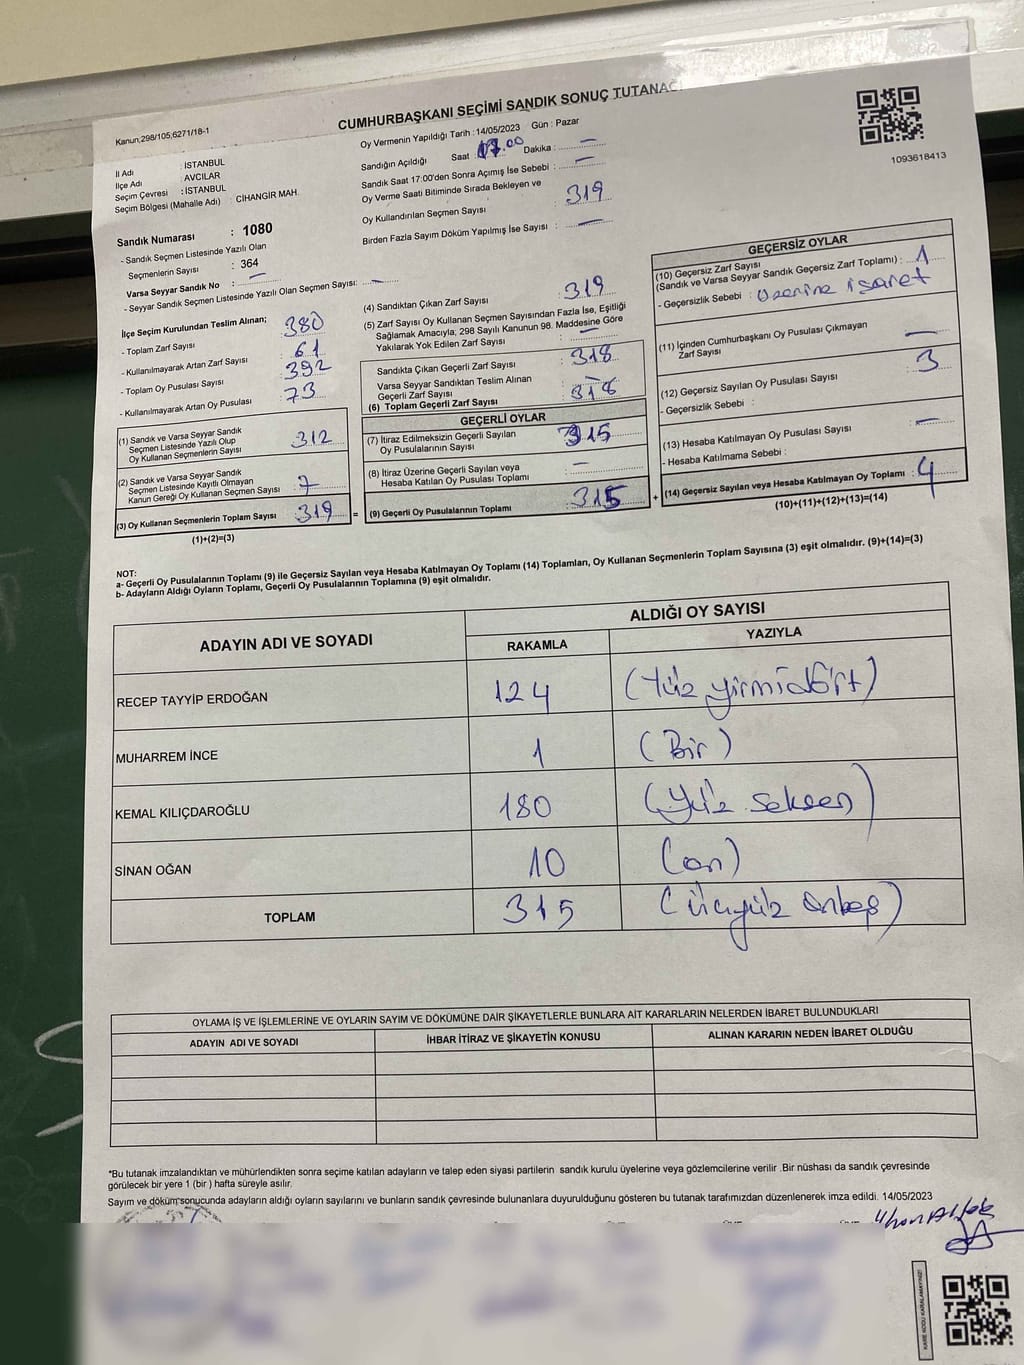 CUMHURBAŞKANI SEÇİMİ SANDIK SONUÇ TUTANAĞ
Kanun,298/105,6271/18-1
1093618413
İl Adı : İSTANBUL
İlçe Adı : AVCILAR
Seçim Çevresi : İSTANBUL
Seçim Bölgesi (Mahalle Adı) : CIHANGIR MAH.
Sandık Numarası : 1080
- Sandık Seçmen Listesinde Yazılı Olan
Seçmenlerin Sayısı : 364
Varsa Seyyar Sandık No : —
- Seyyar Sandık Seçmen Listesinde Yazılı Olan Seçmen Sayısı: —
Oy Vermenin Yapıldığı Tarih : 14/05/2023 Gün : Pazar
Sandığın Açıldığı Saat : 17.00 Dakika : —
Sandık Saat 17:00'den Sonra Açımış İse Sebebi : —
Oy Verme Saati Bitiminde Sırada Bekleyen ve
Oy Kullandırılan Seçmen Sayısı : 319
Birden Fazla Sayım Döküm Yapılmış İse Sayısı : —
İlçe Seçim Kurulundan Teslim Alınan;
- Toplam Zarf Sayısı : 380
- Kullanılmayarak Artan Zarf Sayısı : 61
- Toplam Oy Pusulası Sayısı : 392
- Kullanılmayarak Artan Oy Pusulası : 73
(1) Sandık ve Varsa Seyyar Sandık
Seçmen Listesinde Yazılı Olup
Oy Kullanan Seçmenlerin Sayısı : 312
(2) Sandık ve Varsa Seyyar Sandık
Seçmen Listesinde Kayıtlı Olmayan
Kanun Gereği Oy Kullanan Seçmen Sayısı : 7
(3) Oy Kullanan Seçmenlerin Toplam Sayısı : 319 =
(1)+(2)=(3)
(4) Sandıktan Çıkan Zarf Sayısı : 319
(5) Zarf Sayısı Oy Kullanan Seçmen Sayısından Fazla İse, Eşitliği
Sağlamak Amacıyla; 298 Sayılı Kanunun 98. Maddesine Göre
Yakılarak Yok Edilen Zarf Sayısı : —
Sandıkta Çıkan Geçerli Zarf Sayısı : 318
Varsa Seyyar Sandıktan Teslim Alınan
Geçerli Zarf Sayısı : —
(6) Toplam Geçerli Zarf Sayısı : 318
GEÇERLİ OYLAR
(7) İtiraz Edilmeksizin Geçerli Sayılan
Oy Pusulalarının Sayısı : 315
(8) İtiraz Üzerine Geçerli Sayılan veya
Hesaba Katılan Oy Pusulası Toplamı : —
(9) Geçerli Oy Pusulalarının Toplamı : 315 +
GEÇERSİZ OYLAR
(10) Geçersiz Zarf Sayısı
(Sandık ve Varsa Seyyar Sandık Geçersiz Zarf Toplamı) : 1
- Geçersizlik Sebebi : Üzerine işaret
(11) İçinden Cumhurbaşkanı Oy Pusulası Çıkmayan
Zarf Sayısı : —
(12) Geçersiz Sayılan Oy Pusulası Sayısı : 3
- Geçersizlik Sebebi :
(13) Hesaba Katılmayan Oy Pusulası Sayısı : —
- Hesaba Katılmama Sebebi :
(14) Geçersiz Sayılan veya Hesaba Katılmayan Oy Toplamı : 4
(10)+(11)+(12)+(13)=(14)
NOT:
a- Geçerli Oy Pusulalarının Toplamı (9) ile Geçersiz Sayılan veya Hesaba Katılmayan Oy Toplamı (14) Toplamları, Oy Kullanan Seçmenlerin Toplam Sayısına (3) eşit olmalıdır. (9)+(14)=(3)
b- Adayların Aldığı Oyların Toplamı, Geçerli Oy Pusulalarının Toplamına (9) eşit olmalıdır.
ADAYIN ADI VE SOYADI ALDIĞI OY SAYISI
RAKAMLA YAZIYLA
RECEP TAYYİP ERDOĞAN 124 (Yüz yirmidört)
MUHARREM İNCE 1 (Bir)
KEMAL KILIÇDAROĞLU 180 (Yüz seksen)
SİNAN OĞAN 10 (on)
TOPLAM 315 (üçyüz onbeş)
OYLAMA İŞ VE İŞLEMLERİNE VE OYLARIN SAYIM VE DÖKÜMÜNE DAİR ŞİKAYETLERLE BUNLARA AİT KARARLARIN NELERDEN İBARET BULUNDUKLARI
ADAYIN ADI VE SOYADI İHBAR İTİRAZ VE ŞİKAYETİN KONUSU ALINAN KARARIN NEDEN İBARET OLDUĞU
*Bu tutanak imzalandıktan ve mühürlendikten sonra seçime katılan adayların ve talep eden siyasi partilerin sandık kurulu üyelerine veya gözlemcilerine verilir .Bir nüshası da sandık çevresinde
görülecek bir yere 1 (bir ) hafta süreyle asılır.
Sayım ve döküm sonucunda adayların aldığı oyların sayılarını ve bunların sandık çevresinde bulunanlara duyurulduğunu gösteren bu tutanak tarafımızdan düzenlenerek imza edildi. 14/05/2023
KARE KODU KARALAMAYINIZ!